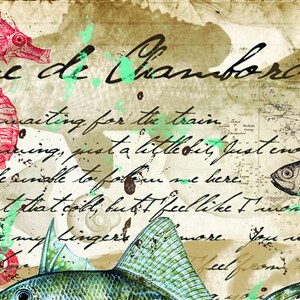 e de Chambord
waiting for the train
just a little bit, just eno
unable to follow me here.
that cold, but I feel like I'm
my fingers more. You
feel from